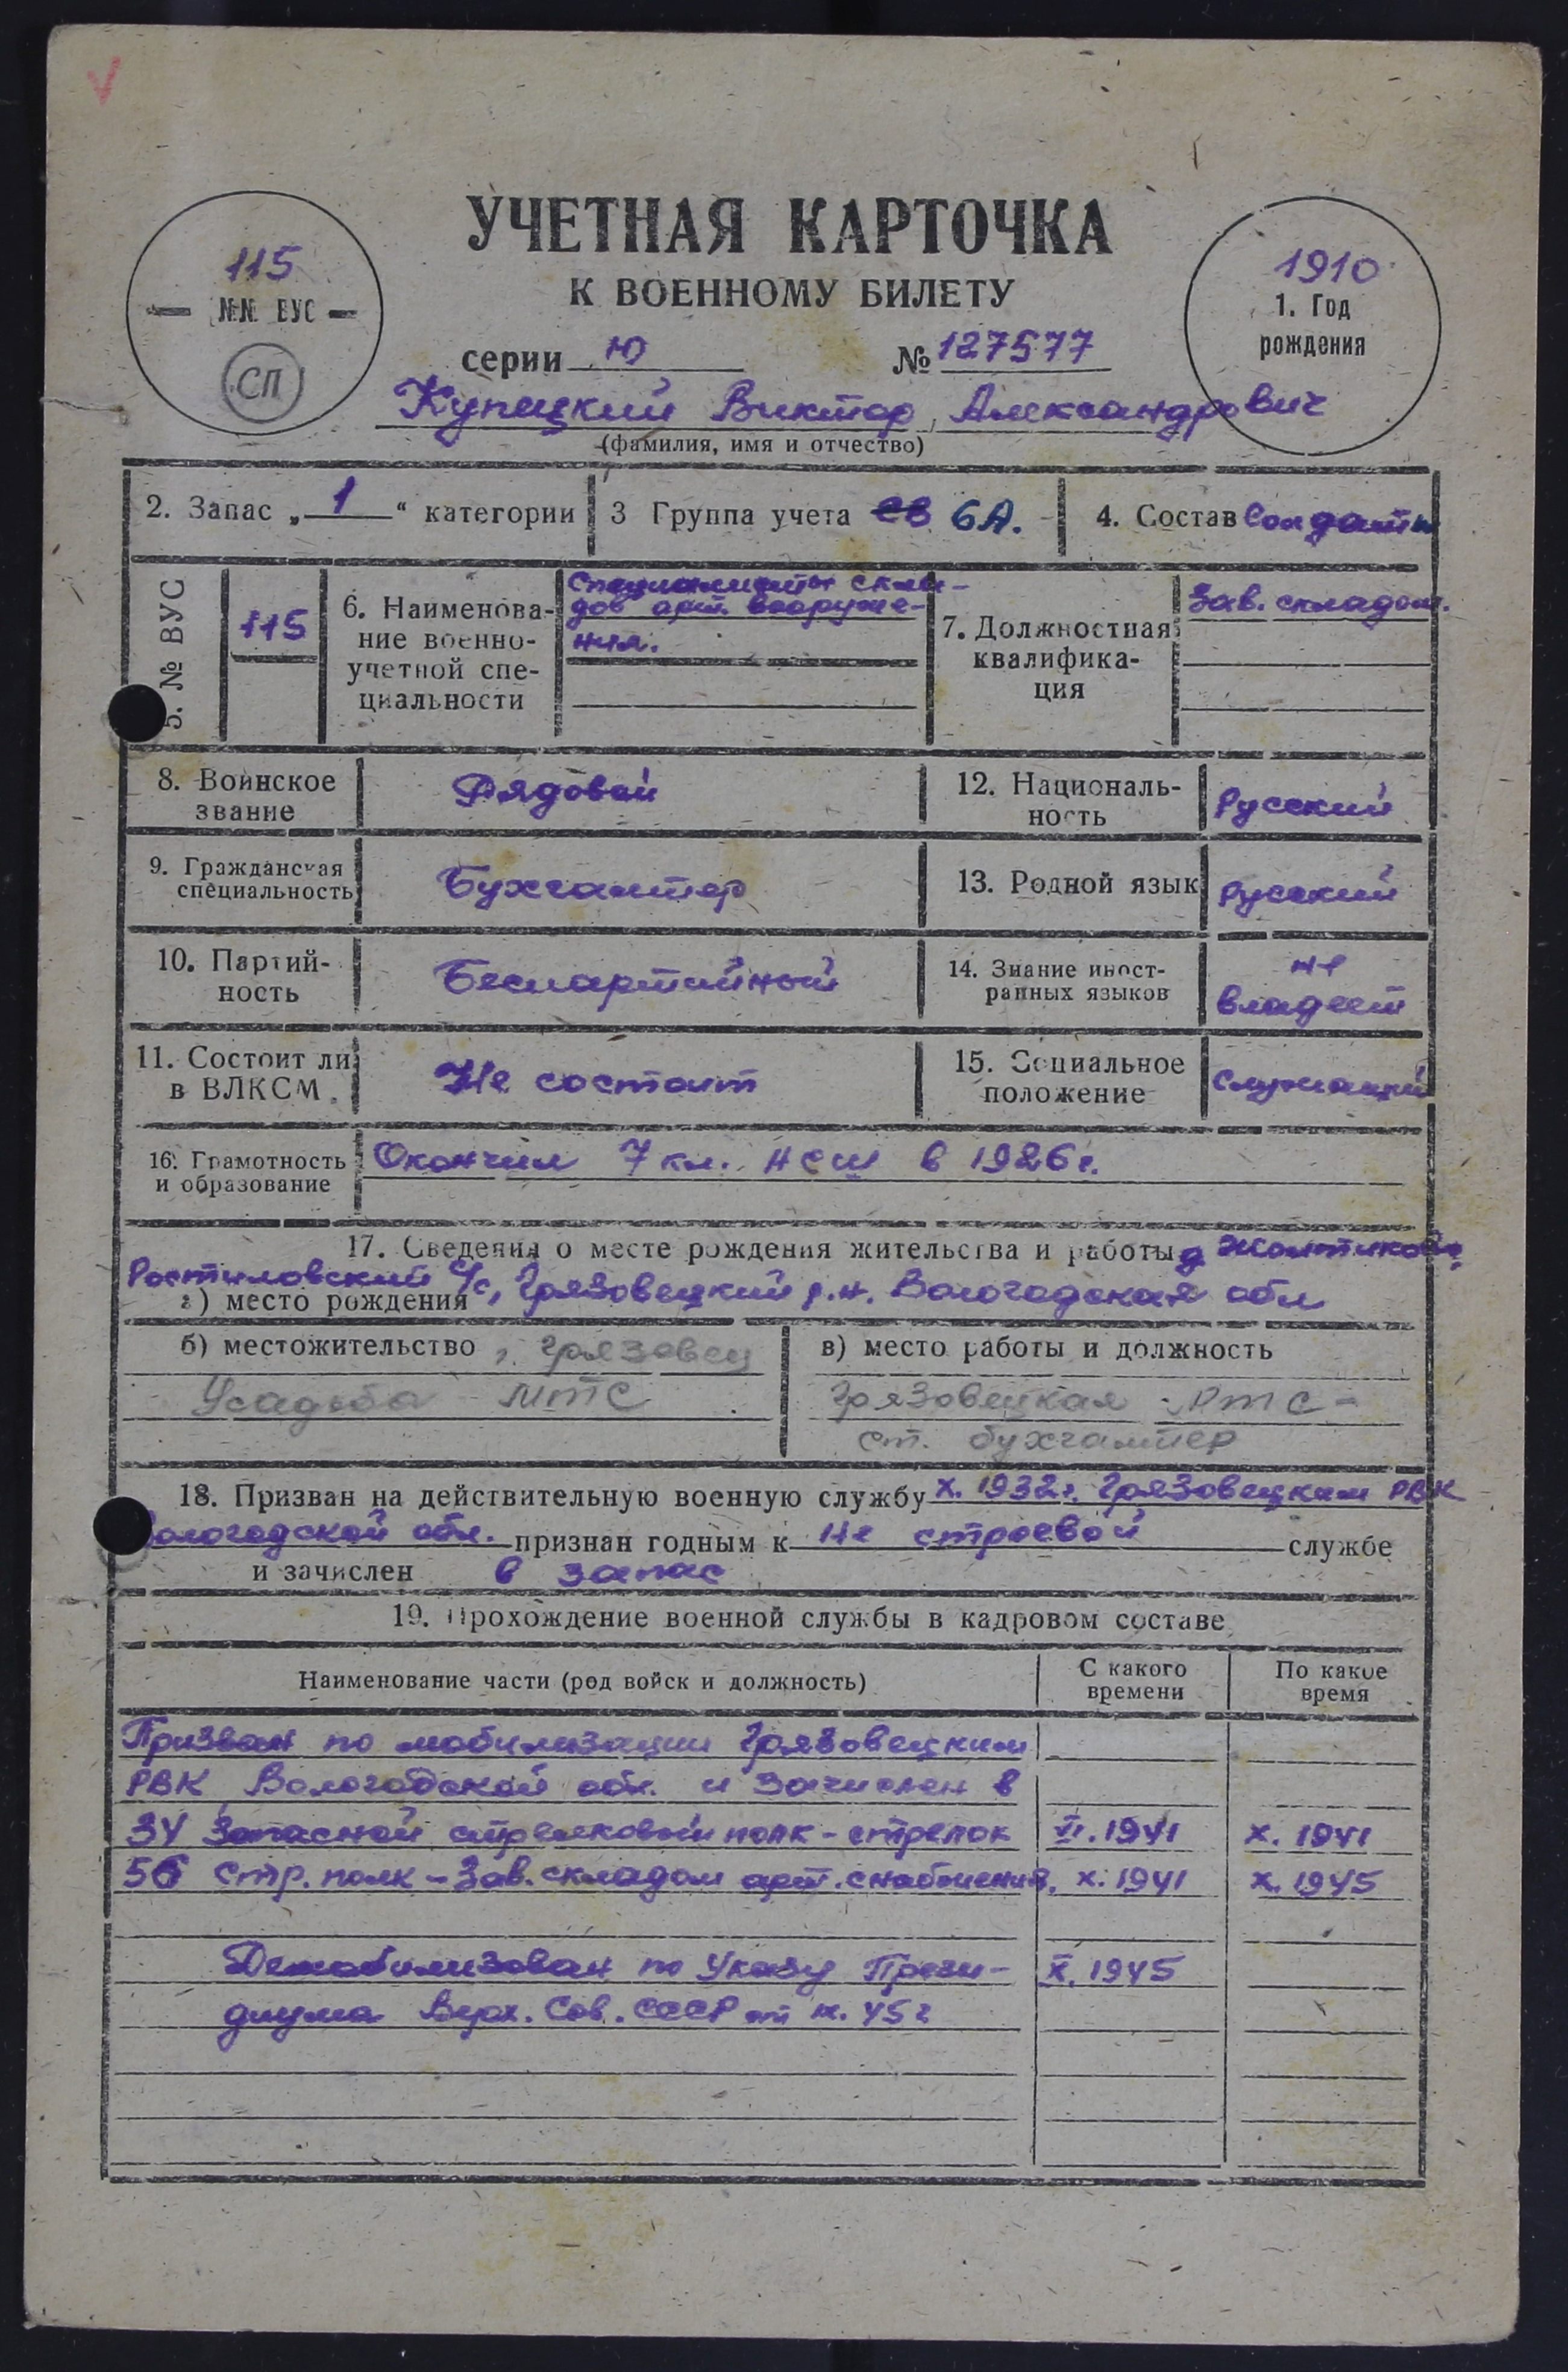 УЧЕТНАЯ КАРТОЧКА
К ВОЕННОМУ БИЛЕТУ
115
№№ ВУС
СП
1910
1. Год
рождения
серии Ю № 127577
Купецкий Виктор Александрович
(фамилия, имя и отчество)
2. Запас „1“ категории
3 Группа учета СВ 6А.
4. Состав Солдаты
5. № ВУС
115
6. Наименова-
ние военно-
учетной спе-
циальности
Специалисты скла-
дов арт. вооруже-
ния.
7. Должностная
квалифика-
ция
Зав. складом.
8. Воинское
звание
Рядовой
12. Националь-
ность
Русский
9. Гражданская
специальность
Бухгалтер
13. Родной язык
Русский
10. Партий-
ность
Беспартийный
14. Знание иност-
ранных языков
не
владеет
11. Состоит ли
в ВЛКСМ.
Не состоит
15. Социальное
положение
Служащий
16. Грамотность
и образование
Окончил 7 кл. НСШ в 1926 г.
17. Сведения о месте рождения жительства и работы д.
Ростиловский с/с, Грязовецкий р.н. Вологодская обл
а) место рождения
б) местожительство г. Грязовец
Усадьба МТС
в) место работы и должность
Грязовецкая РТС -
ст. бухгалтер
18. Призван на действительную военную службу X. 1932 г. Грязовецким РВК
Вологодской обл. признан годным к не строевой службе
и зачислен в запас
19. Прохождение военной службы в кадровом составе
Наименование части (род войск и должность)
С какого
времени
По какое
время
Призван по мобилизации Грязовецким
РВК Вологодской обл. и зачислен в
34 Запасной стрелковый полк - стрелок VI. 1941 X. 1941
56 Стр. полк - Зав. складом арт. снабжения. X. 1941 X. 1945
Демобилизован по Указу Прези- X. 1945
диума Верх. Сов. СССР от 45 г